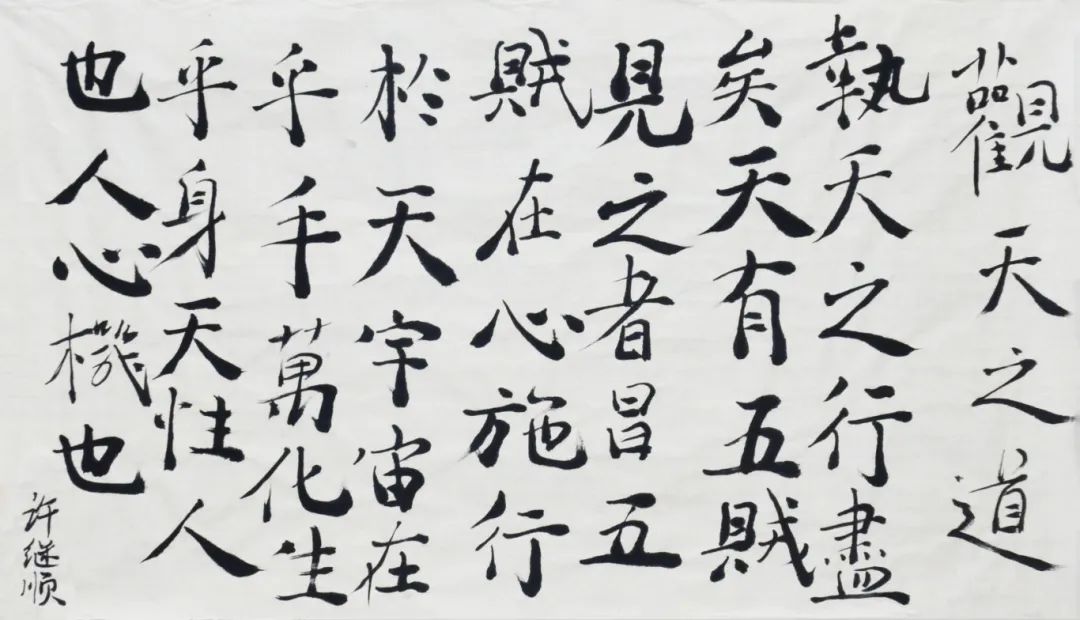 觀天之道
執天之行盡
矣天有五賊
見之者昌五
賊在心施行
於天宇宙在
乎手萬化生
乎身天性人
也人心機也
许继顺